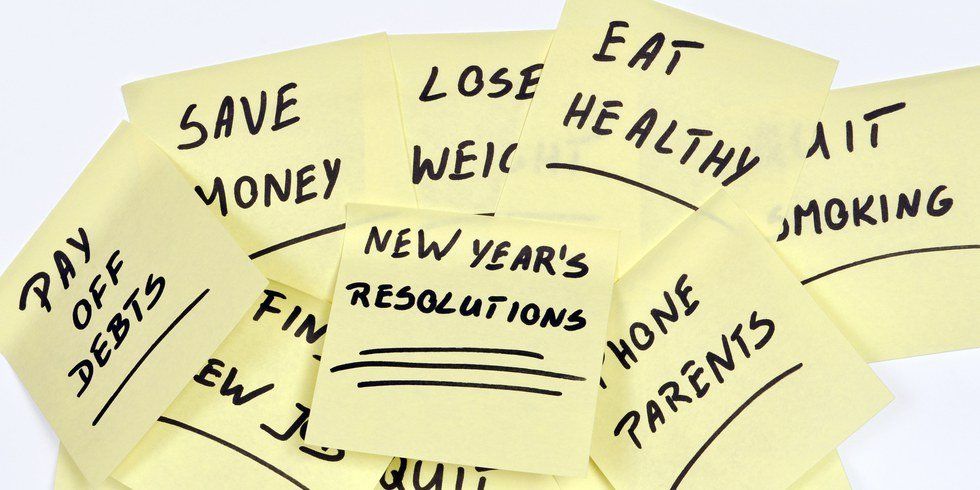 SAVE
MONEY
LOSE
WEIGHT
EAT
HEALTHY
QUIT
SMOKING
PAY
OFF
DEBTS
NEW YEAR'S
RESOLUTIONS
PHONE
PARENTS
FIN
EW JOB
QUIT